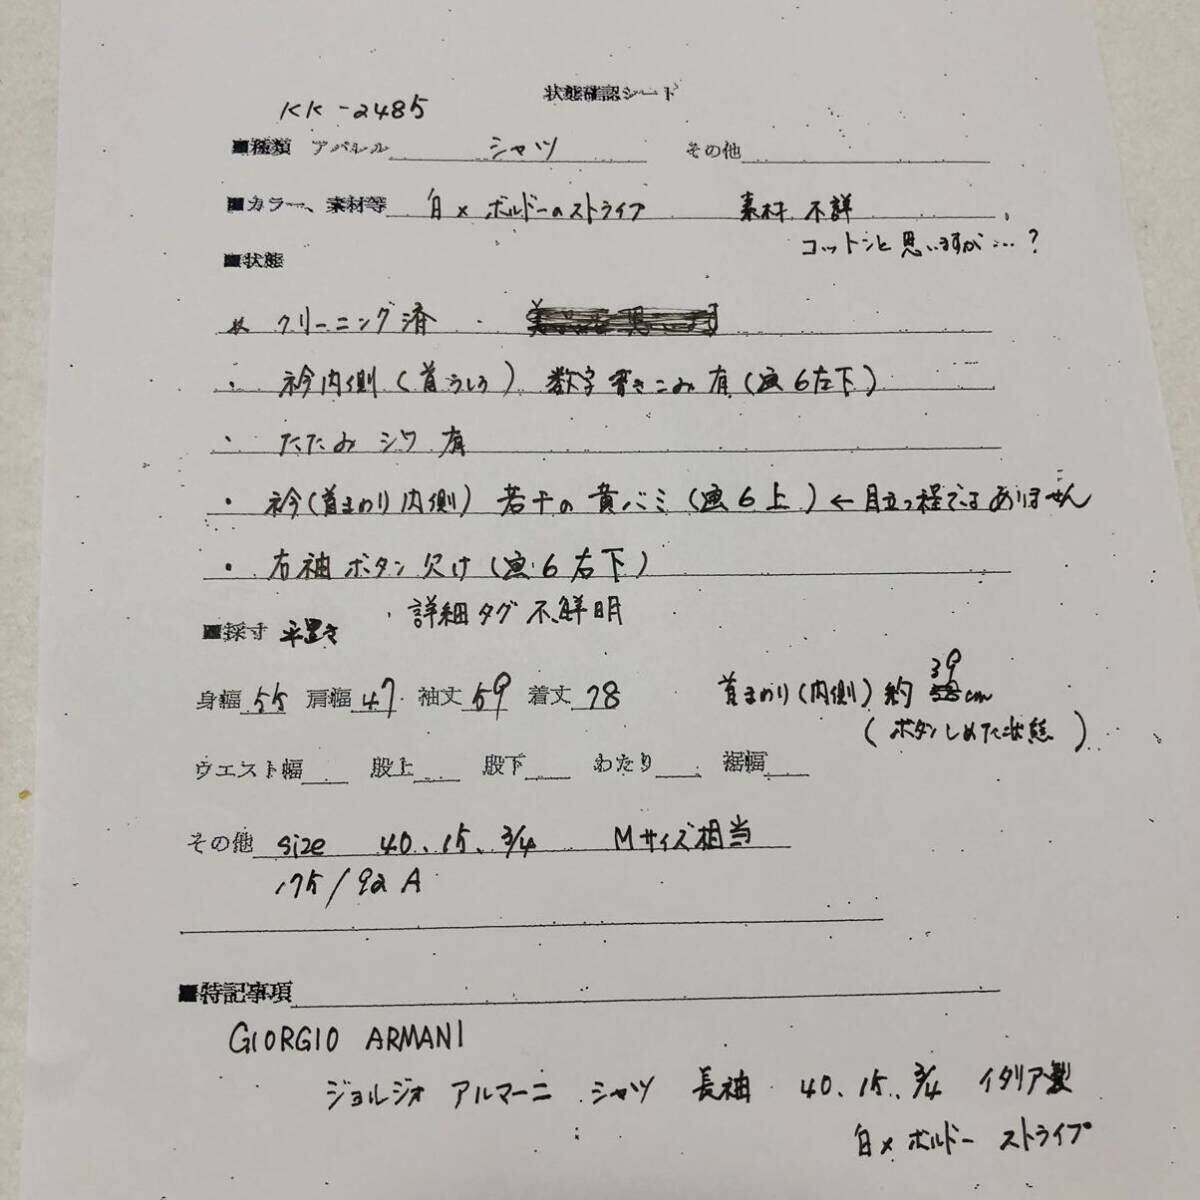 状態確認シート
KK-2485
■種類 アパレル シャツ その他
■カラー、素材等 白×ボルドーのストライプ 素材 不詳
コットンと思いますが…?
■状態
* クリーニング済
・ 衿内側(首うしろ) 数字書きこみ有(画6左下)
・ たたみシワ有
・ 衿(首まわり内側) 若干の黄バミ(画6上)←目立つ程でもありません
・ 右袖ボタン欠け(画6右下)
・ 詳細タグ不鮮明
■採寸 平置き
身幅 55 肩幅 47 袖丈 59 着丈 78 首まわり(内側)約 39 cm
(ボタンしめた状態)
ウエスト幅 股上 股下 わたり 裾幅
その他 size 40、15、3/4 Mサイズ相当
175/92A
■特記事項
GIORGIO ARMANI
ジョルジオ アルマーニ シャツ 長袖 40、15、3/4 イタリア製
白×ボルドー ストライプ